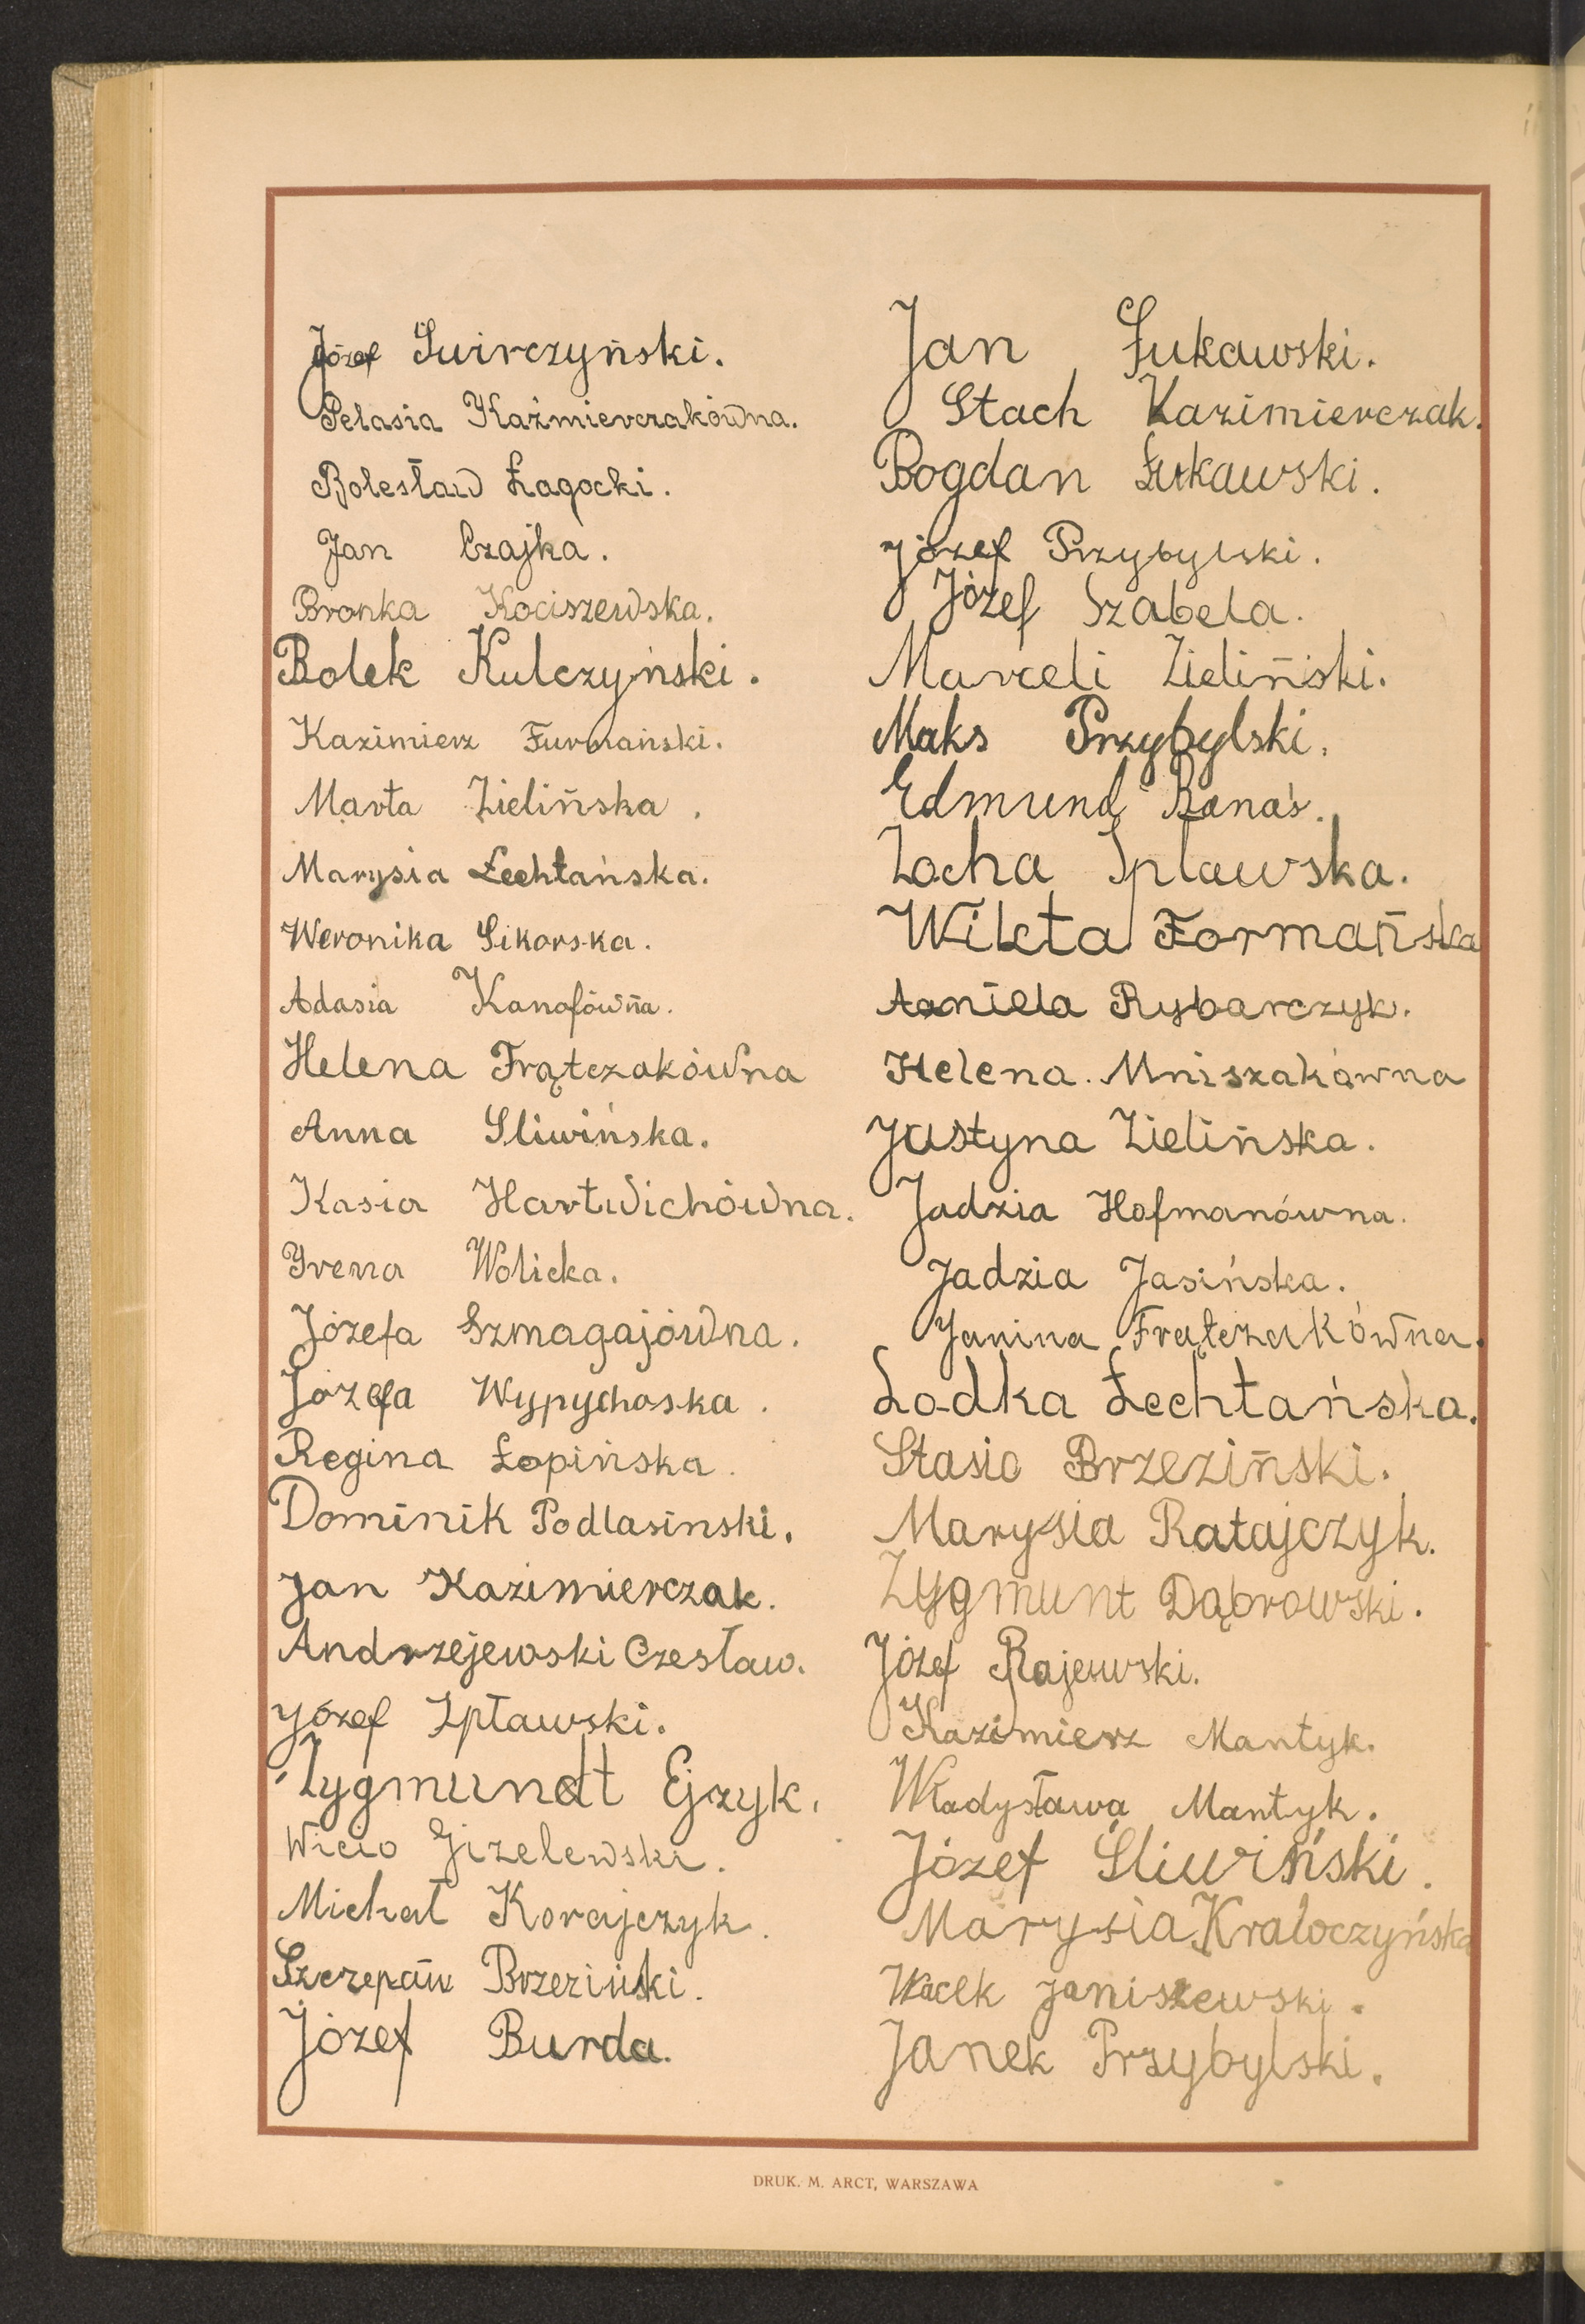 Józef Swirczyński.
Pelasia Kaźmierczakówna.
Bolesław Łagocki.
Jan Czajka.
Bronka Kociszewska.
Bolek Kulczyński.
Kazimierz Furmański.
Marta Zielińska.
Marysia Łechtańska.
Weronika Sikorska.
Adasia Kanofówna.
Helena Frątczakówna
Anna Sliwińska.
Kasia Hartwichówna.
Yrena Wolicka.
Józefa Szmagajówna.
Józefa Wypychoska.
Regina Łopińska.
Dominik Podlasinski.
Jan Kazimierczak.
Andrzejewski Czesław.
Józef Spławski.
Zygmundt Ejzyk.
Wicio Gizelewski.
Michał Korajczyk.
Szczepań Brzeziński.
Józef Burda.
Jan Łukawski.
Stach Kazimierczak.
Bogdan Łukawski.
Józef Przybylski.
Józef Szabela.
Marceli Zieliński.
Maks Przybylski.
Edmund Banaś.
Zocha Splawska.
Wileta Formańska
Aniela Rybarczyk.
Helena. Mniszakówna
Justyna Zielińska.
Jadzia Hofmanówna.
Jadzia Jasińska.
Janina Frątczakówna.
Lodka Łechtańska.
Stasio Brzeziński.
Marysia Ratajczyk.
Zygmunt Dąbrowski.
Józef Rajewski.
Kazimierz Mantyk.
Władysława Mantyk.
Józef Śliwiński.
Marysia
Wacek Janiszewski.
Janek Przybylski.
DRUK. M. ARCT, WARSZAWA